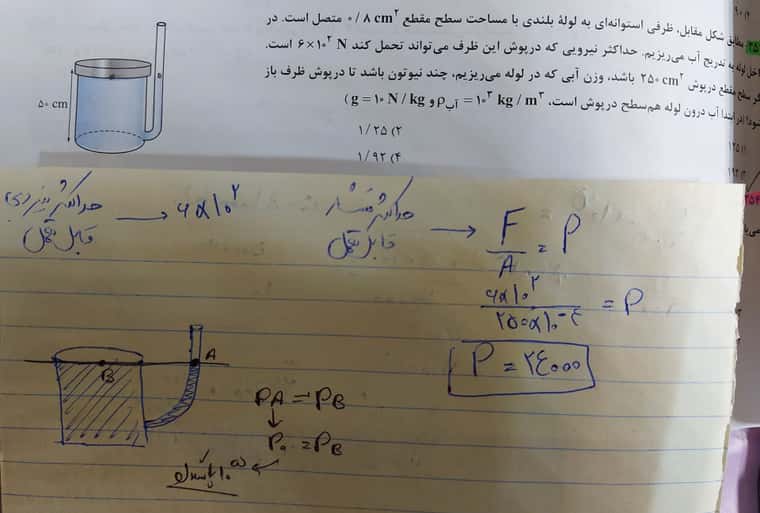 ۹۰ (۳
مطابق شکل مقابل، ظرفی استوانه‌ای به لولهٔ بلندی با مساحت سطح مقطع ۰/۸ cm² متصل است. در
داخل لوله به تدریج آب می‌ریزیم. حداکثر نیرویی که درپوش این ظرف می‌تواند تحمل کند ۶×۱۰² N است.
اگر سطح مقطع درپوش ۲۵۰ cm² باشد، وزن آبی که در لوله می‌ریزیم، چند نیوتون باشد تا درپوش ظرف باز
شود؟ (در ابتدا آب درون لوله هم‌سطح درپوش است، ρآب = ۱۰³ kg/m³ و g=۱۰ N/kg)
۱۲۵ (۱
۱/۲۵ (۲
۱۹۲ (۳
۱/۹۲ (۴
۵۰ cm
۲۵۴
حداکثر نیروی قابل تحمل → ۶×۱۰²
حداکثر فشار قابل تحمل → F/A = P
۶×۱۰² / ۲۵۰×۱۰⁻⁴ = P
P = ۲۴۰۰۰
A
B
PA = PB
↓
P₀ = PB
← ۱۰⁵ پاسکال